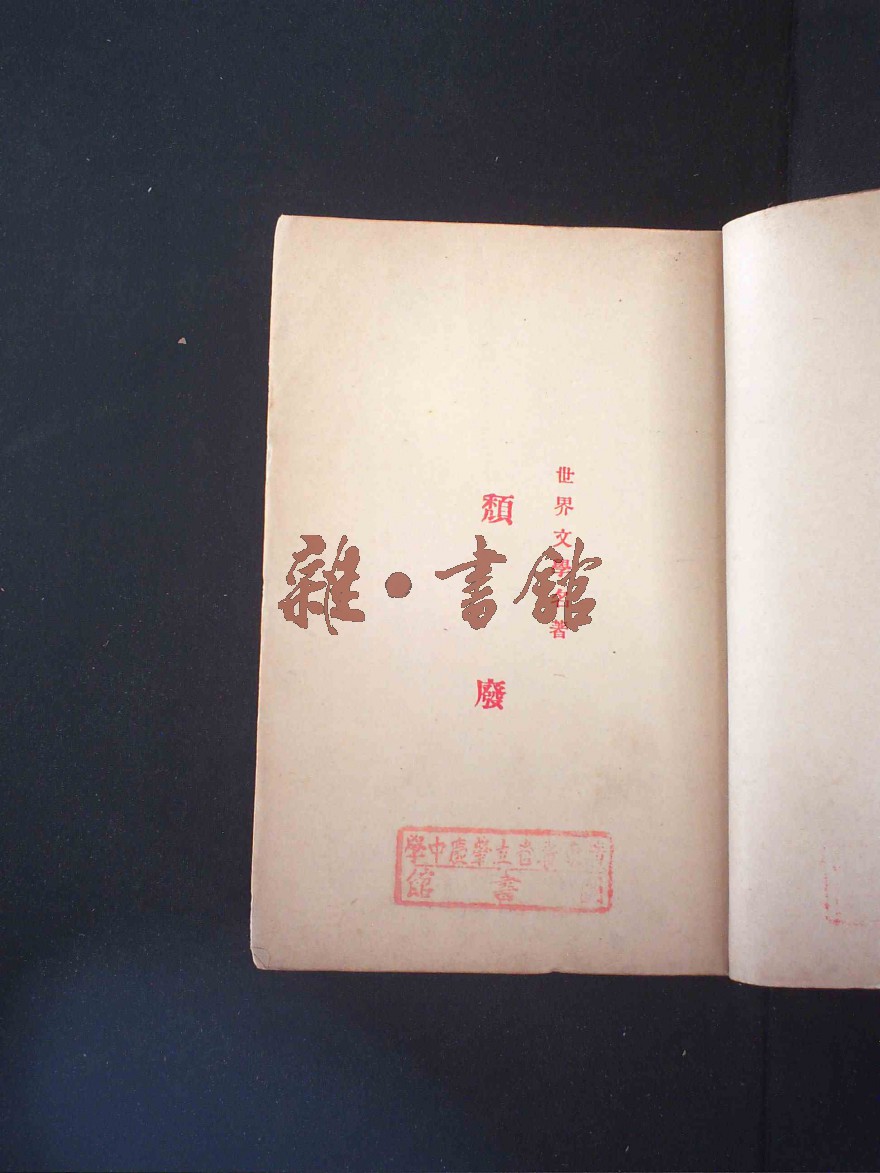 世界文學名著
頹廢
雜·書館
省立肇慶中學
書館